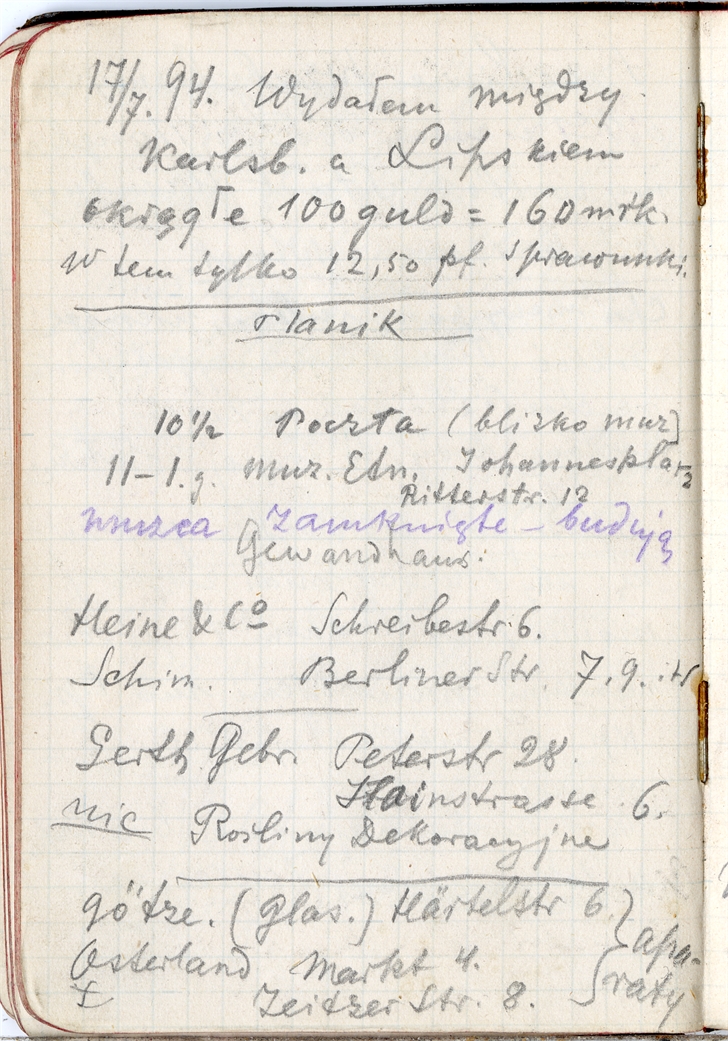 17/7. 94. Wydałem między
Karlsb. a Lipskiem
okrągłe 100 guld = 160 mrk.
w tem tylko 12,50 pf. sprawunki.
Planik
10 1/2 Poczta (blizko muz)
11–1. g. Muz. Etn. Johannesplatz
Ritterstr. 12
zamknięte – budują
Gewandhaus.
Heine & Co Schreibestr. 6.
Schim. Berliner Str. 7. 9.
Gerth Gebr. Peterstr 28.
Hainstrasse 6.
nic Rośliny Dekoracyjne
Götze. (Glas.) Härtelstr 6
Osterland Markt 4. apa-
Zeitzer Str. 8. raty